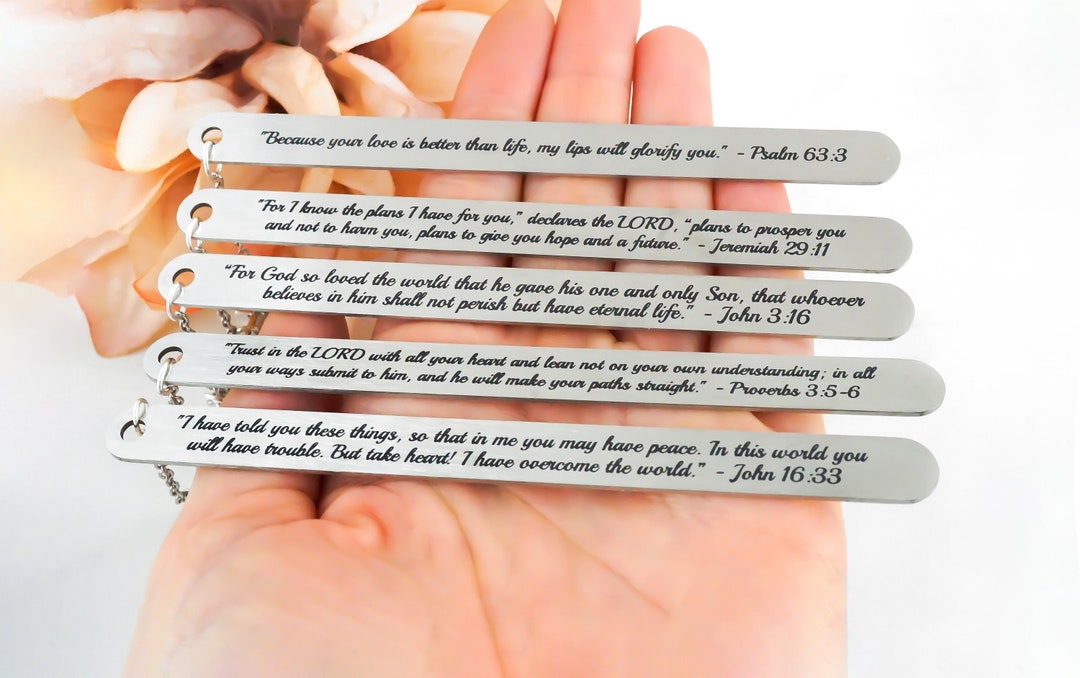 "Because your love is better than life, my lips will glorify you." - Psalm 63:3
"For I know the plans I have for you," declares the LORD, "plans to prosper you
and not to harm you, plans to give you hope and a future." - Jeremiah 29:11
"For God so loved the world that he gave his one and only Son, that whoever
believes in him shall not perish but have eternal life." - John 3:16
"Trust in the LORD with all your heart and lean not on your own understanding; in all
your ways submit to him, and he will make your paths straight." - Proverbs 3:5-6
"I have told you these things, so that in me you may have peace. In this world you
will have trouble. But take heart! I have overcome the world." - John 16:33